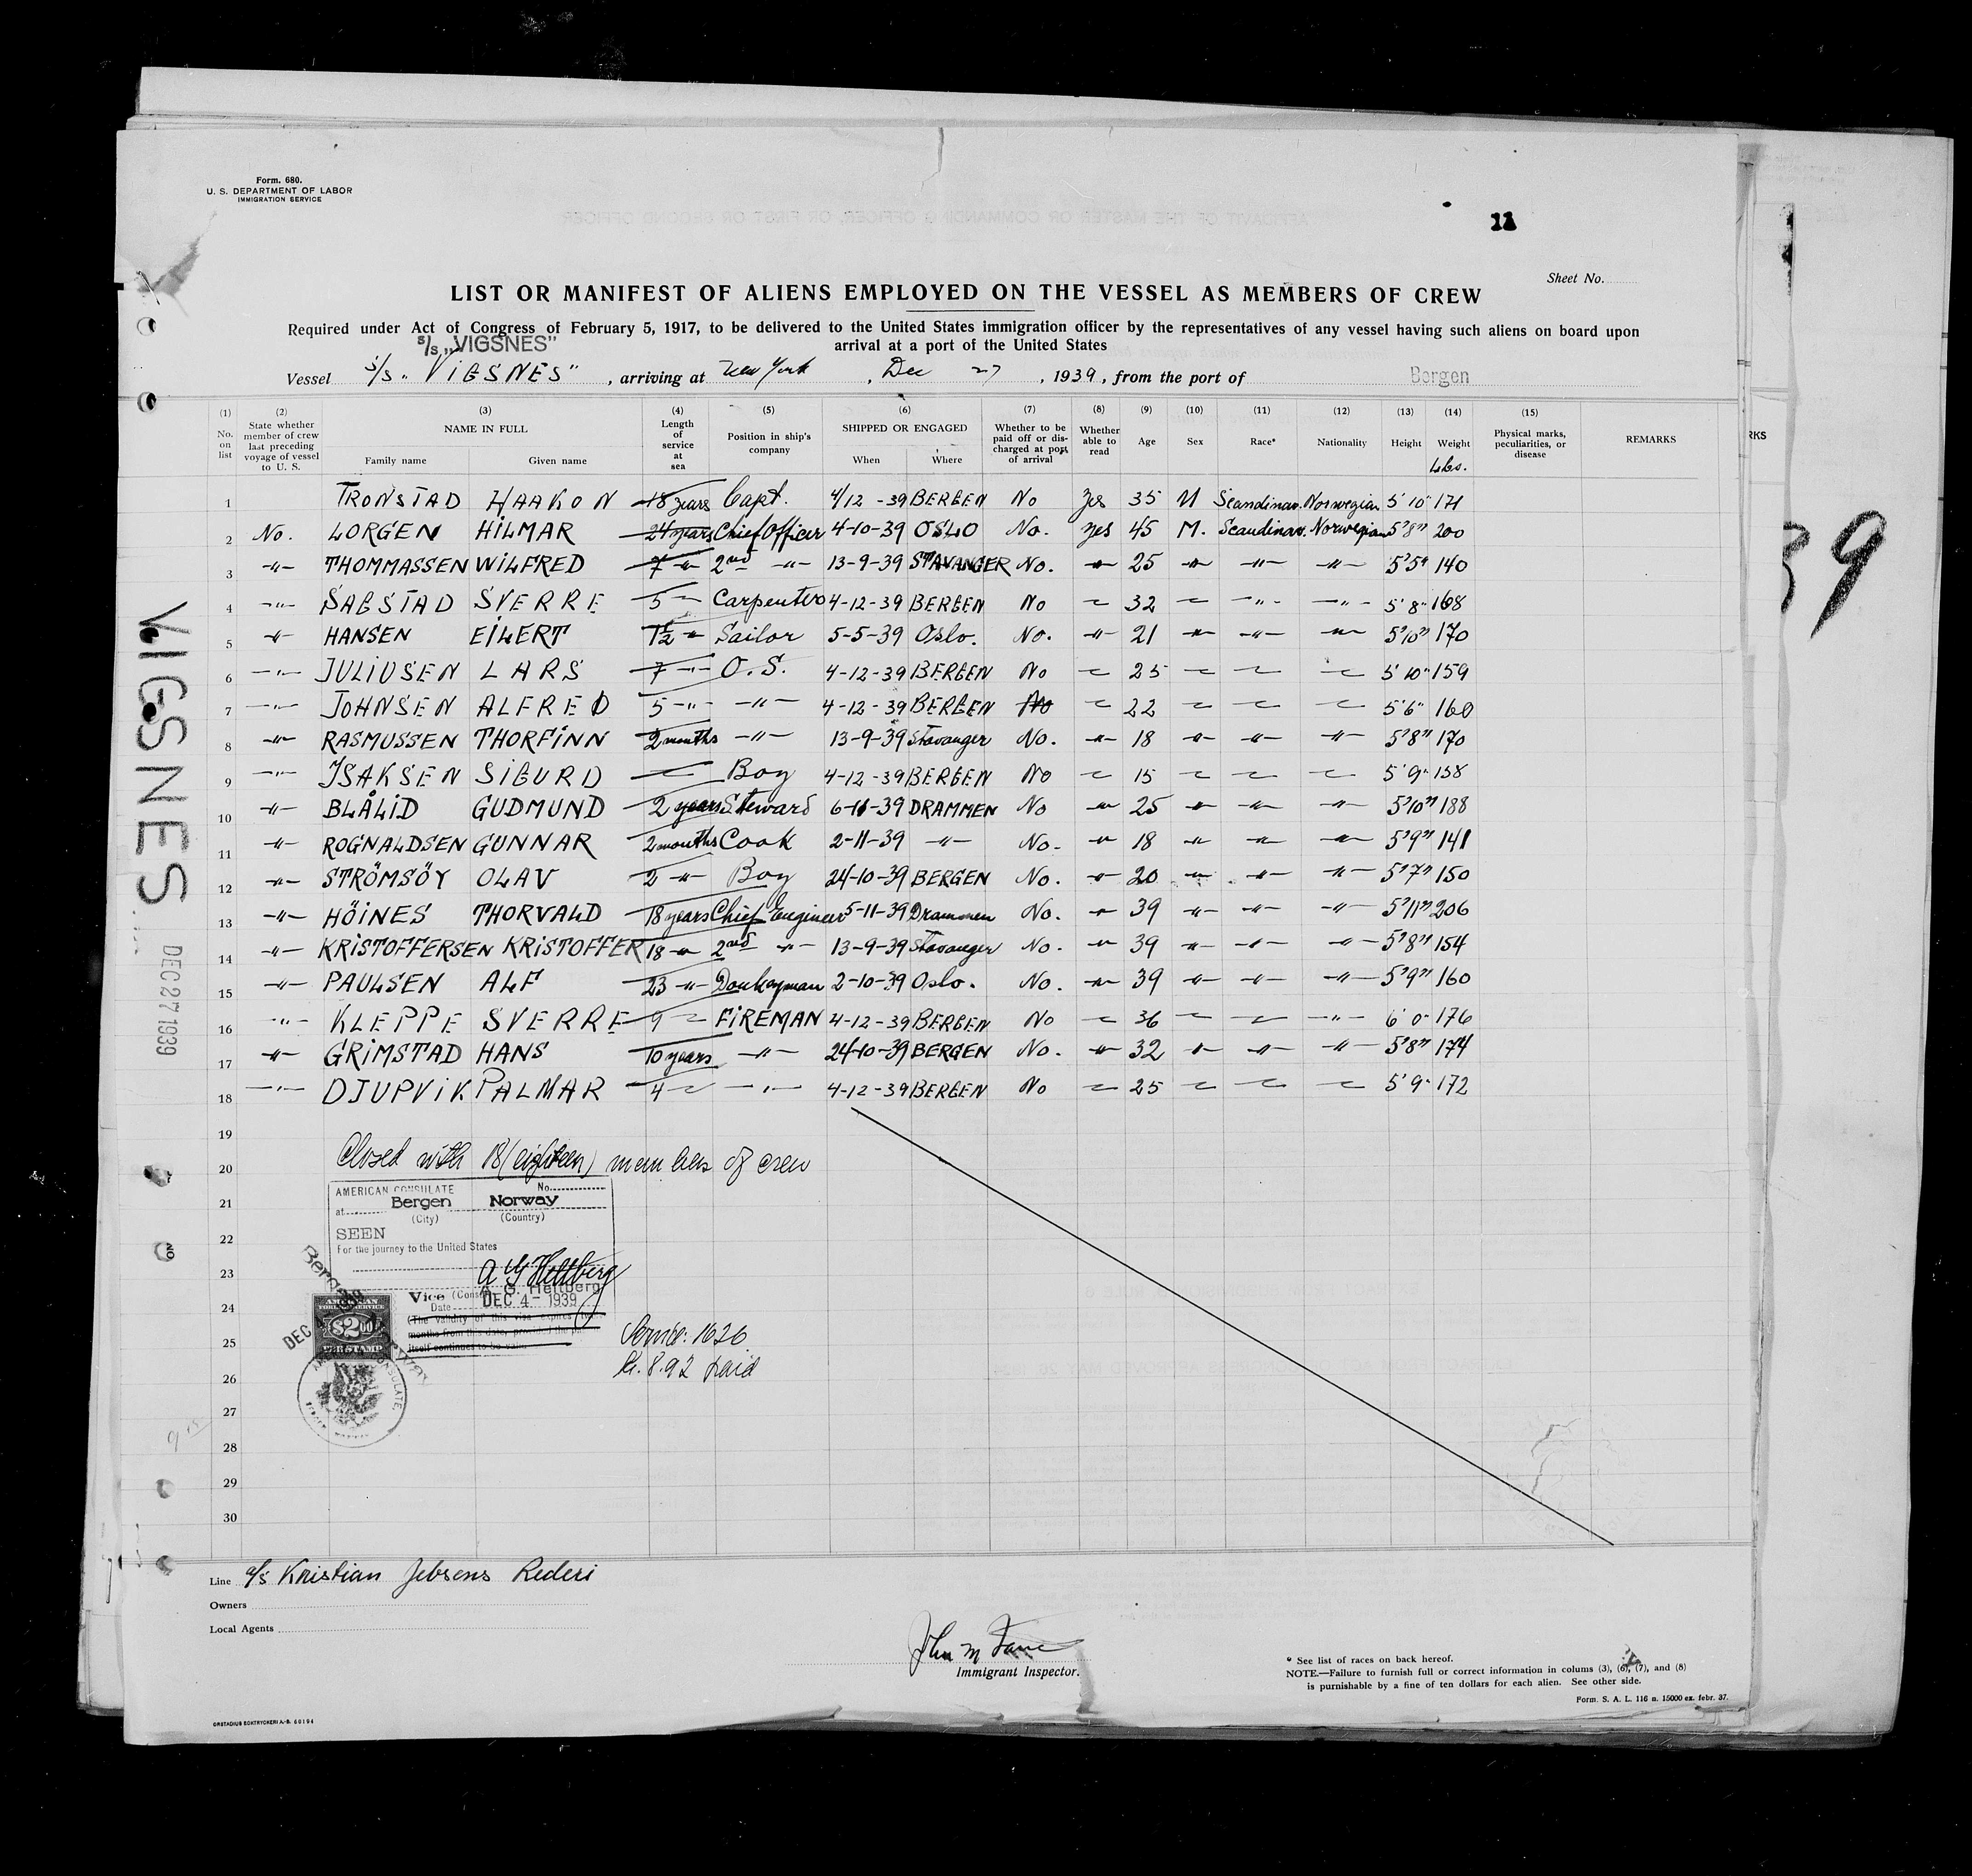 Form. 680.
U. S. DEPARTMENT OF LABOR
IMMIGRATION SERVICE
11
Sheet No.
LIST OR MANIFEST OF ALIENS EMPLOYED ON THE VESSEL AS MEMBERS OF CREW
Required under Act of Congress of February 5, 1917, to be delivered to the United States immigration officer by the representatives of any vessel having such aliens on board upon
arrival at a port of the United States
S/S „VIGSNES"
Vessel S/S „VIGSNES", arriving at New York, Dec 27, 1939, from the port of Bergen
(1) (2) (3) (4) (5) (6) (7) (8) (9) (10) (11) (12) (13) (14) (15)
No. on list State whether member of crew last preceding voyage of vessel to U. S. NAME IN FULL Family name Given name Length of service at sea Position in ship's company SHIPPED OR ENGAGED When Where Whether to be paid off or discharged at port of arrival Whether able to read Age Sex Race* Nationality Height Weight Lbs. Physical marks, peculiarities, or disease REMARKS
RKS
1 TRONSTAD HAAKON 18 years Capt. 4/12 -39 BERGEN No Yes 35 M Scandinav. Norwegian 5' 10" 171
2 No. LORGEN HILMAR 24 years Chief Officer 4-10-39 OSLO No. Yes 45 M. Scandinav. Norwegian 5'8" 200
3 -"- THOMMASSEN WILFRED 7 -"- 2nd -"- 13-9-39 STAVANGER No. -"- 25 -"- -"- -"- 5'5" 140
4 -"- SAGSTAD SVERRE 5 -"- Carpenter 4-12-39 BERGEN No -"- 32 -"- -"- -"- 5' 8" 168
5 -"- HANSEN EILERT 1½ -"- Sailor 5-5-39 Oslo. No. -"- 21 -"- -"- -"- 5'10" 170
6 -"- JULIUSEN LARS 7 -"- O.S. 4-12-39 BERGEN No -"- 25 -"- -"- -"- 5' 10" 159
7 -"- JOHNSEN ALFRED 5 -"- -"- 4-12-39 BERGEN No -"- 22 -"- -"- -"- 5'6" 160
8 -"- RASMUSSEN THORFINN 2 months -"- 13-9-39 Stavanger No. -"- 18 -"- -"- -"- 5'8" 170
9 -"- ISAKSEN SIGURD -"- Boy 4-12-39 BERGEN No -"- 15 -"- -"- -"- 5' 9" 158
10 -"- BLÅLID GUDMUND 2 years Steward 6-11-39 DRAMMEN No -"- 25 -"- -"- -"- 5'10" 188
11 -"- ROGNALDSEN GUNNAR 2 months Cook 2-11-39 -"- No. -"- 18 -"- -"- -"- 5'9" 141
12 -"- STRÖMSÖY OLAV 2 -"- Boy 24-10-39 BERGEN No. -"- 20 -"- -"- -"- 5'7" 150
13 -"- HÖINES THORVALD 18 years Chief Engineer 5-11-39 Drammen No. -"- 39 -"- -"- -"- 5'11" 206
14 -"- KRISTOFFERSEN KRISTOFFER 18 -"- 2nd -"- 13-9-39 Stavanger No. -"- 39 -"- -"- -"- 5'8" 154
15 -"- PAULSEN ALF 23 -"- Donkeyman 2-10-39 Oslo. No. -"- 39 -"- -"- -"- 5'9" 160
16 -"- KLEPPE SVERRE 9 -"- FIREMAN 4-12-39 BERGEN No -"- 36 -"- -"- -"- 6' 0" 176
17 -"- GRIMSTAD HANS 10 years -"- 24-10-39 BERGEN No. -"- 32 -"- -"- -"- 5'8" 174
18 -"- DJUPVIK PALMAR 4 -"- -"- 4-12-39 BERGEN No -"- 25 -"- -"- -"- 5' 9" 172
19
20 Closed with 18 (eighteen) members of crew
21
22
23
24
25
26
27
28
29
30
AMERICAN CONSULATE No.
at Bergen Norway
(City) (Country)
SEEN
For the journey to the United States
A G Heltberg
A. G. Heltberg
Vice
Date DEC 4 - 1939
(The validity of this visa expires
months from this date, provided the
itself continues to be valid
AMERICAN
FOREIGN SERVICE
$2.00
FEE STAMP
Bergen
DEC
AMERICAN CONSULATE
Service: 1626
Kr. 8.92 paid
VIGSNES
DEC 27 1939
39
Line A/S Kristian Jebsens Rederi
Owners
Local Agents
Immigrant Inspector.
* See list of races on back hereof.
NOTE.—Failure to furnish full or correct information in colums (3), (6), (7), and (8)
is punishable by a fine of ten dollars for each alien. See other side.
Form. S. A. L. 116 n. 15000 ex. febr. 37.
GRSTADIUS BOKTRYCKERI A.-B. 60194